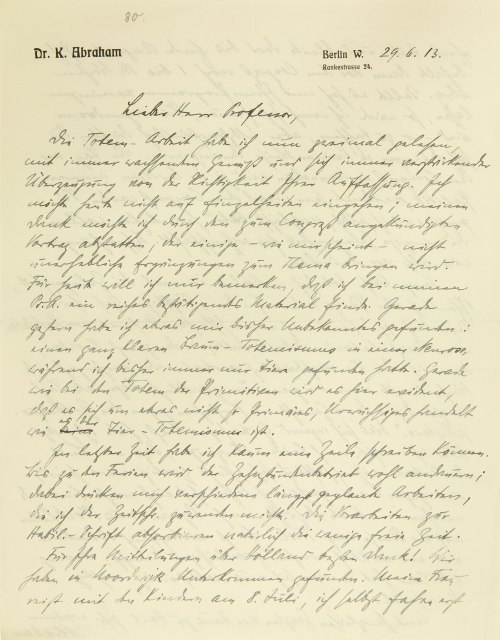 80.
Dr. K. Abraham
Berlin W. 29.6.13.
Rankestrasse 24.
Lieber Herr Professor,
Die Totem-Arbeit habe ich nun zweimal gelesen,
mit immer wachsendem Genuß und sich immer verstärkender
Überzeugung von der Richtigkeit Ihrer Auffassung. Ich
möchte heute nicht auf Einzelheiten eingehen; meinen
Dank möchte ich durch den zum Congreß angekündigten
Vortrag abstatten, der einige – wie mir scheint – nicht
unerhebliche Ergänzungen zum Thema bringen wird.
Für heute will ich nur bemerken, daß ich bei meinen
ein reiches bestätigendes Material finde. Gerade
gestern habe ich etwas mir bisher Unbekanntes gefunden:
einen ganz klaren Baum-Totemismus in einer Neurose,
während ich bisher immer nur Tiere gefunden hatte. Gerade
wie bei den Totem der Primitiven wird es hier evident,
daß es sich um etwas nicht so Primäres, Ursprüngliches handelt
wie es der Tier-Totemismus ist.
In letzter Zeit habe ich kaum eine Zeile schreiben können.
Bis zu den Ferien wird der Zehnstundenbetrieb wohl andauern;
dabei drücken mich verschiedene längst geplante Arbeiten,
die ich der Zeitschr. zuwenden möchte. Die Vorarbeiten zur
Habil.-Schrift absorbieren natürlich die wenige freie Zeit.
Für Ihre Mitteilungen über Holland besten Dank! Wir
haben in Noordwyk Unterkommen gefunden. Meine Frau
reist mit den Kindern am 8. Juli, ich selbst fahre erst